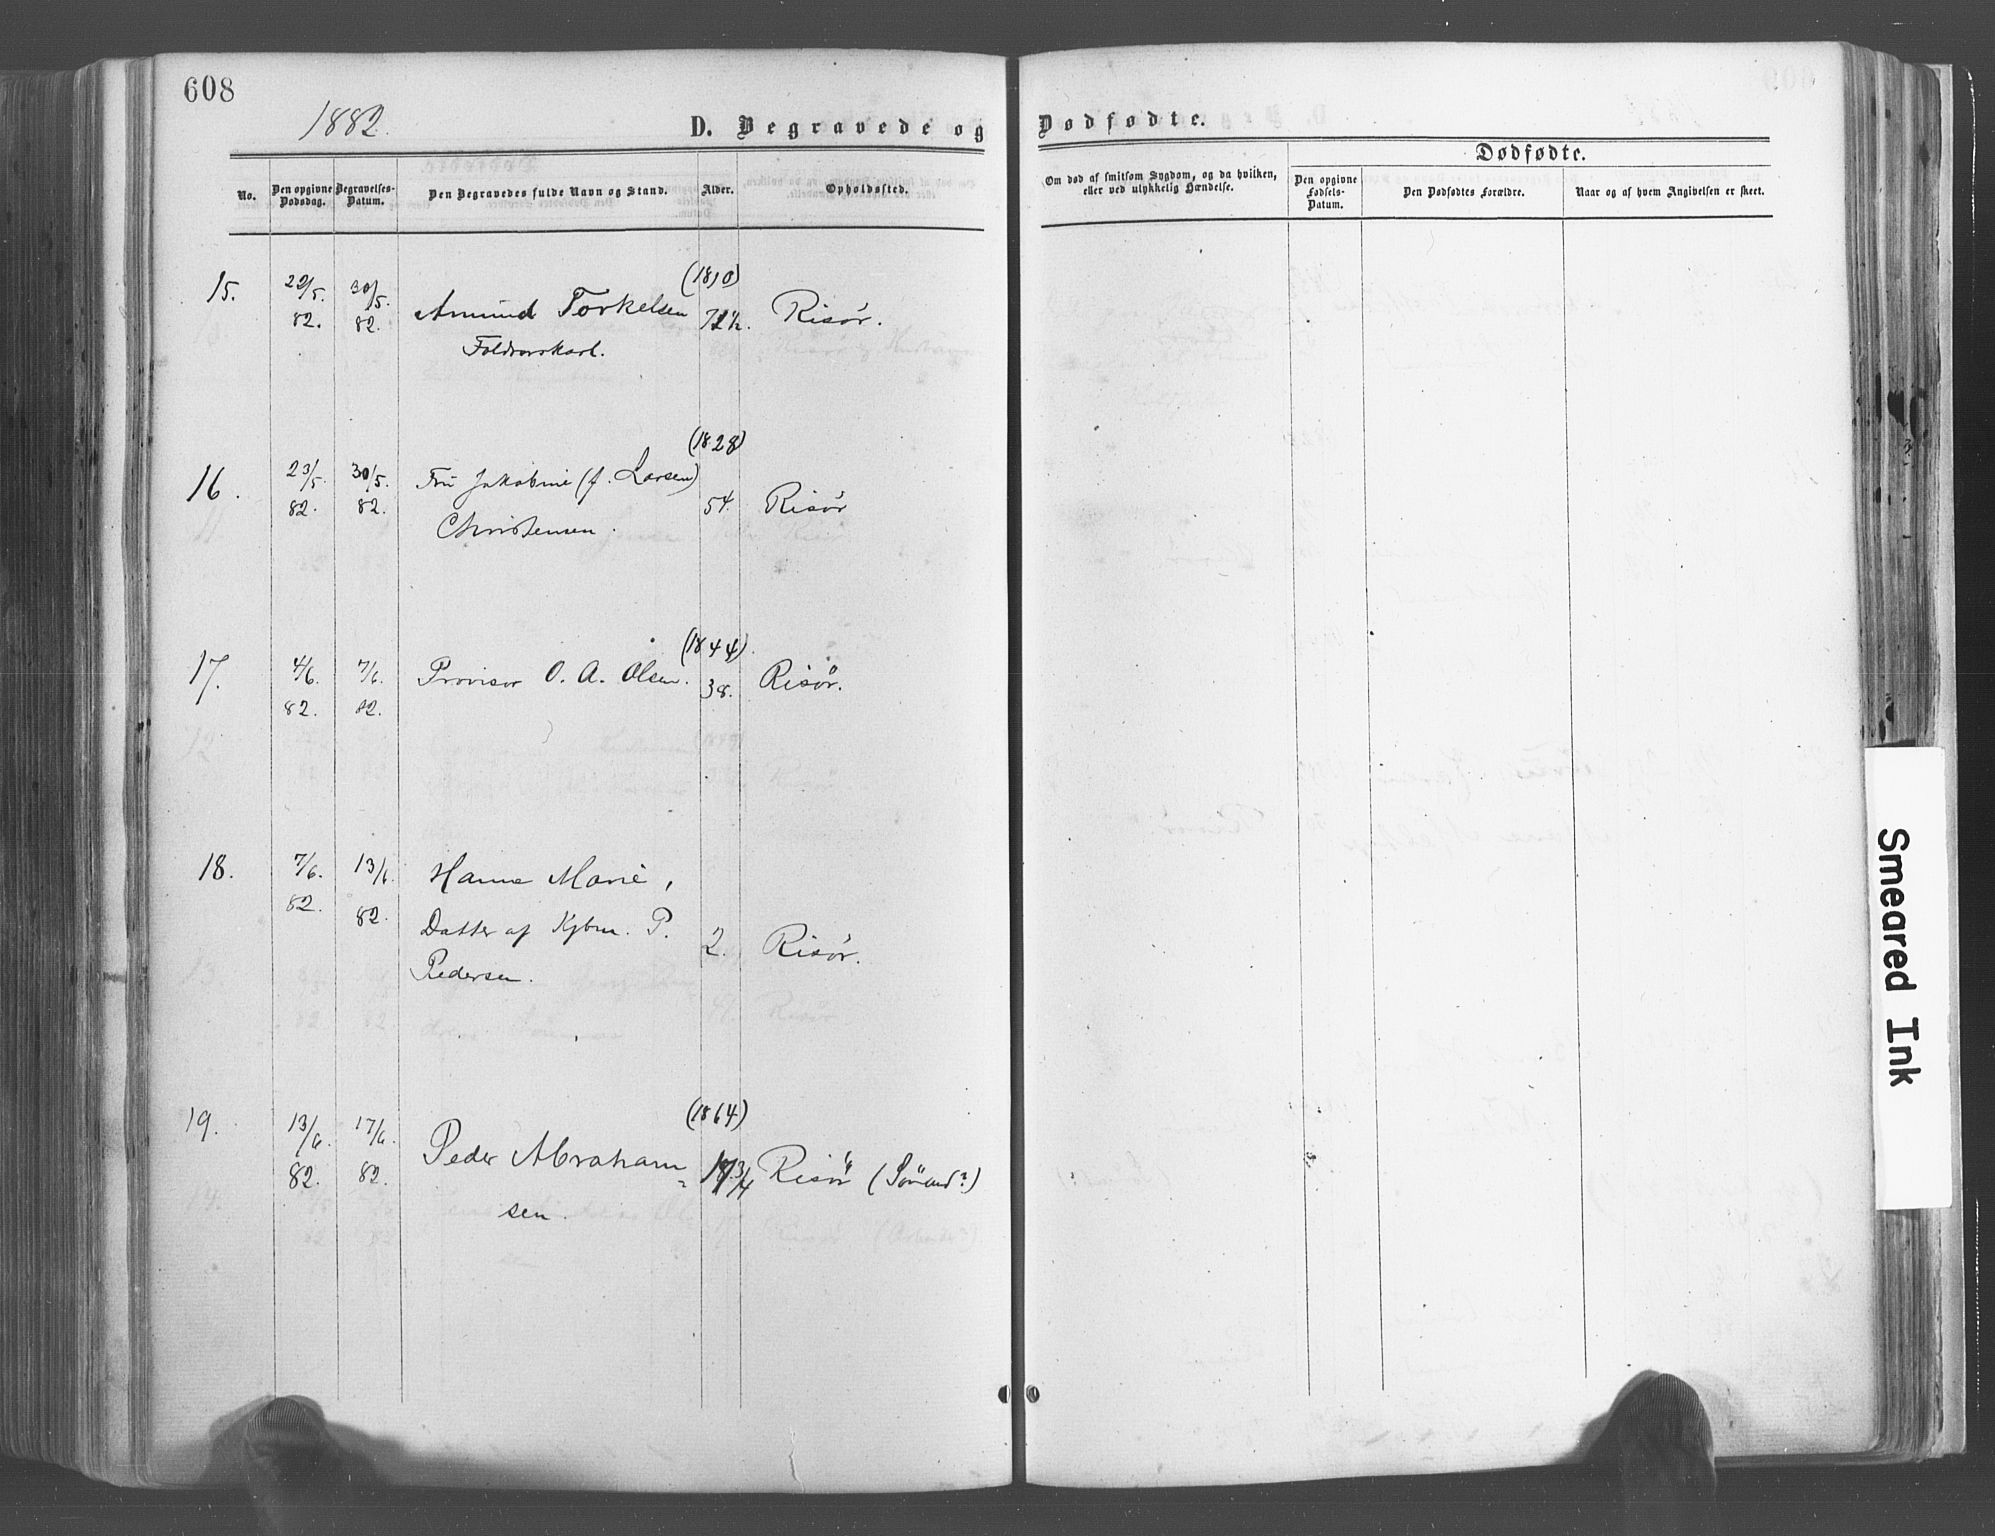 608
1882.
D. Begravede og
Dødfødte.
Dødfødte.
No.
Den opgivne Dødsdag.
Begravelses-Datum.
Den Begravedes fulde Navn og Stand.
Alder.
Opholdssted.
Om død af smitsom Sygdom, og da hvilken, eller ved ulykkelig Hændelse.
Den opgivne Fødsels-Datum.
Den Dødfødtes Forældre.
Naar og af hvem Angivelsen er skeet.
(1810)
15. 22/5. 30/5. Amund Torkelsen Risør.
82. 82.
(1828)
16. 23/5. 30/5. Fru Jakobine (f. Larsen)
82. 82. 54. Risør
Christensen.
(1844)
17. 4/6. 7/6. Provisor O. A. Olsen. 38. Risør.
82. 82.
18. 7/6. 13/6. Hanne Marie,
82. 82. Datter af Kjbm. P. 2. Risør.
Pedersen.
(1864)
19. 13/6. 17/6. Peder Abraham- 17 3/4 Risør (Sømand?)
82. 82.
sen.
Smeared Ink